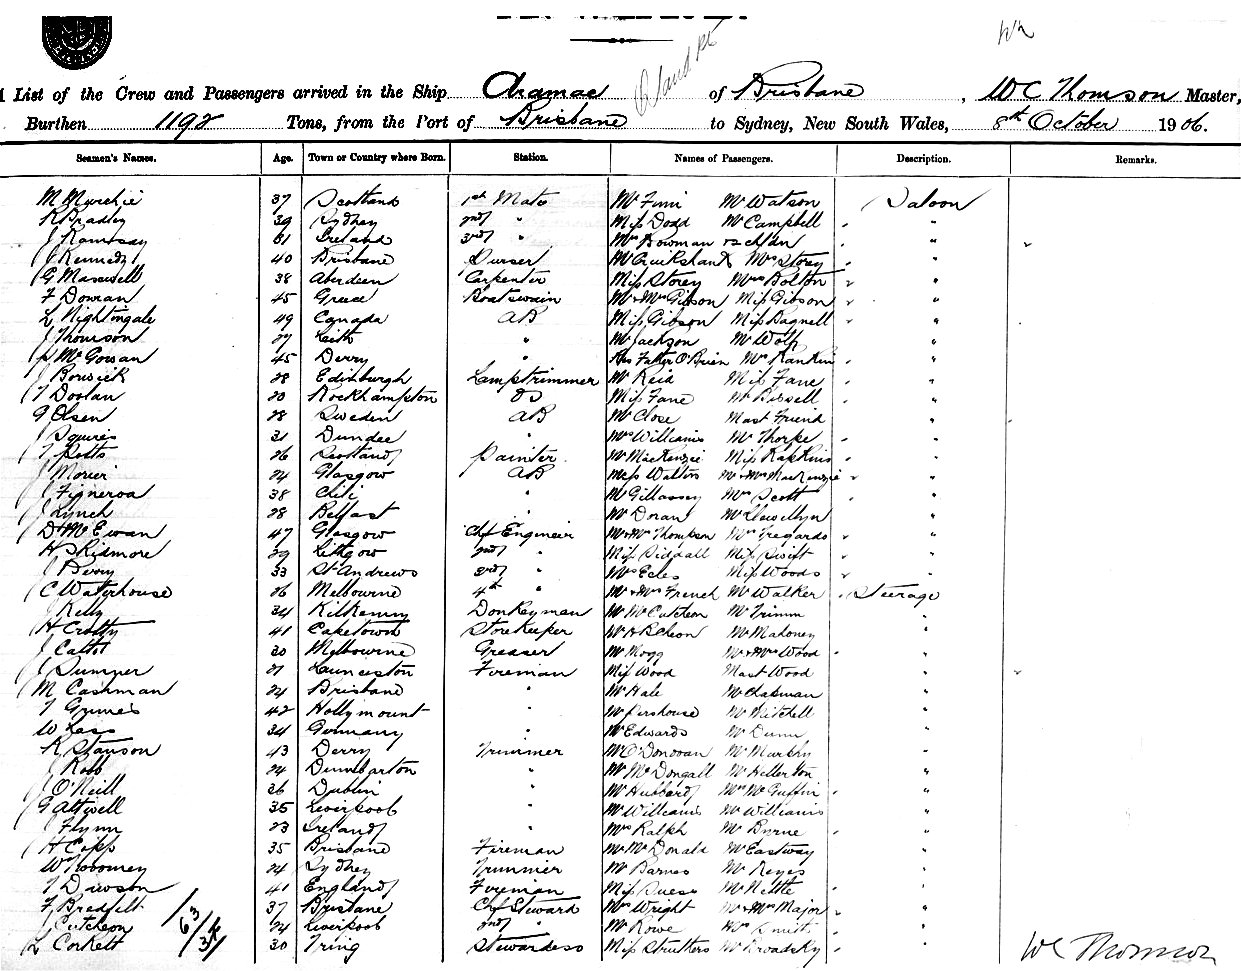 A List of the Crew and Passengers arrived in the Ship Aramac of Brisbane, W C Thomson Master,
Burthen 1192 Tons, from the Port of Brisbane to Sydney, New South Wales, 8th October 1906.
Seamen's Names. Age. Town or Country where Born. Station. Names of Passengers. Description. Remarks.
M Murchie 37 Scotland 1st Mate Mr Finn Mr Watson Saloon
R Bradley 39 Sydney 2nd " Miss Dodd Mr Campbell "
J Ramsay 61 Ireland 3rd " Mrs Bowman "
J Kennedy 40 Brisbane Purser Mr Cruikshank Mrs Storey "
G Maxwell 38 Aberdeen Carpenter Miss Storey Mrs Bolton "
F Dowan 45 Greece Boatswain Mr & Mrs Gibson Miss Gibson "
L Nightingale 49 Canada AB Miss Gibson Miss Bagnell "
J Thomson 27 Leith " Mr Jackson Mr Wolf "
McGowan 45 Derry " Rev Father O'Brien Mrs Rankin "
J Borwick 28 Edinburgh Lamptrimmer Mr Reid Miss Fane "
T Doolan 20 Rockhampton OS Miss Fane Mr Bissell "
G Olsen 28 Sweden AB Mr Close Mast Friend "
J Squires 31 Dundee " Mrs Williams Mr Thorpe "
T Potts 26 Scotland Painter Mr MacKenzie Miss Rapkins "
J Morier 24 Glasgow AB Miss Walters Mr & Mrs MacKenzie "
J Figneroa 38 Chili " Mr Gillassey Mrs Scott "
J Lynch 28 Belfast " Mr Doran Mr Llewellyn "
D McEwan 47 Glasgow Chf Engineer Mr & Mrs Thompson Mrs Tregards "
H Skidmore 29 Lithgow 2nd " Miss Siddall Miss Swift "
J Berry 33 St Andrews 3rd " Mrs Ecles Miss Woods "
C Waterhouse 26 Melbourne 4th " Mr & Mrs French Mr Walker Steerage
J Kelly 34 Kilkenny Donkeyman Mr McCutcheon Mr Trimm "
H Crotty 41 Caketown Storekeeper Mr Mahoney "
J Cattot 30 Melbourne Greaser Mr Mogg Mr & Mrs Wood "
J Sumner 21 Launceston Fireman Miss Wood Mast Wood "
M Cashman 24 Brisbane " Mr Hale Mr Chapman "
T Grimes 42 Hollymount " Mr Pershouse Mr Mitchell "
W Lass 34 Germany " Mr Edwards Mr Dunn "
R Stanson 43 Derry Trimmer Mr O'Donovan Mr Murphy "
J Robb 24 Dumbarton " Mr McDongall Mr Hellerton "
J O'Neill 36 Dublin " Mr Hubbard Mrs McGuffin "
G Attwell 35 Liverpool " Mr Williams Mr Williams "
J Flynn 23 Ireland " Mrs Ralph Mr Byrne "
H Capp 35 Brisbane Fireman Mr McDonald Mr Eastway "
W Twomey 24 Sydney Trimmer Mr Barnes Mr Keyes "
T Dawson 41 England Fireman Miss Mr Nettle "
F Bredfelt 37 Brisbane Chf Steward Mrs Wright Mr & Mrs Major "
J Cutcheon 24 Liverpool 2nd " Mr Rowe Mrs Smith "
L Corkett 30 Tring Stewardess Miss Struthers Mr Broadsky "
W C Thomson